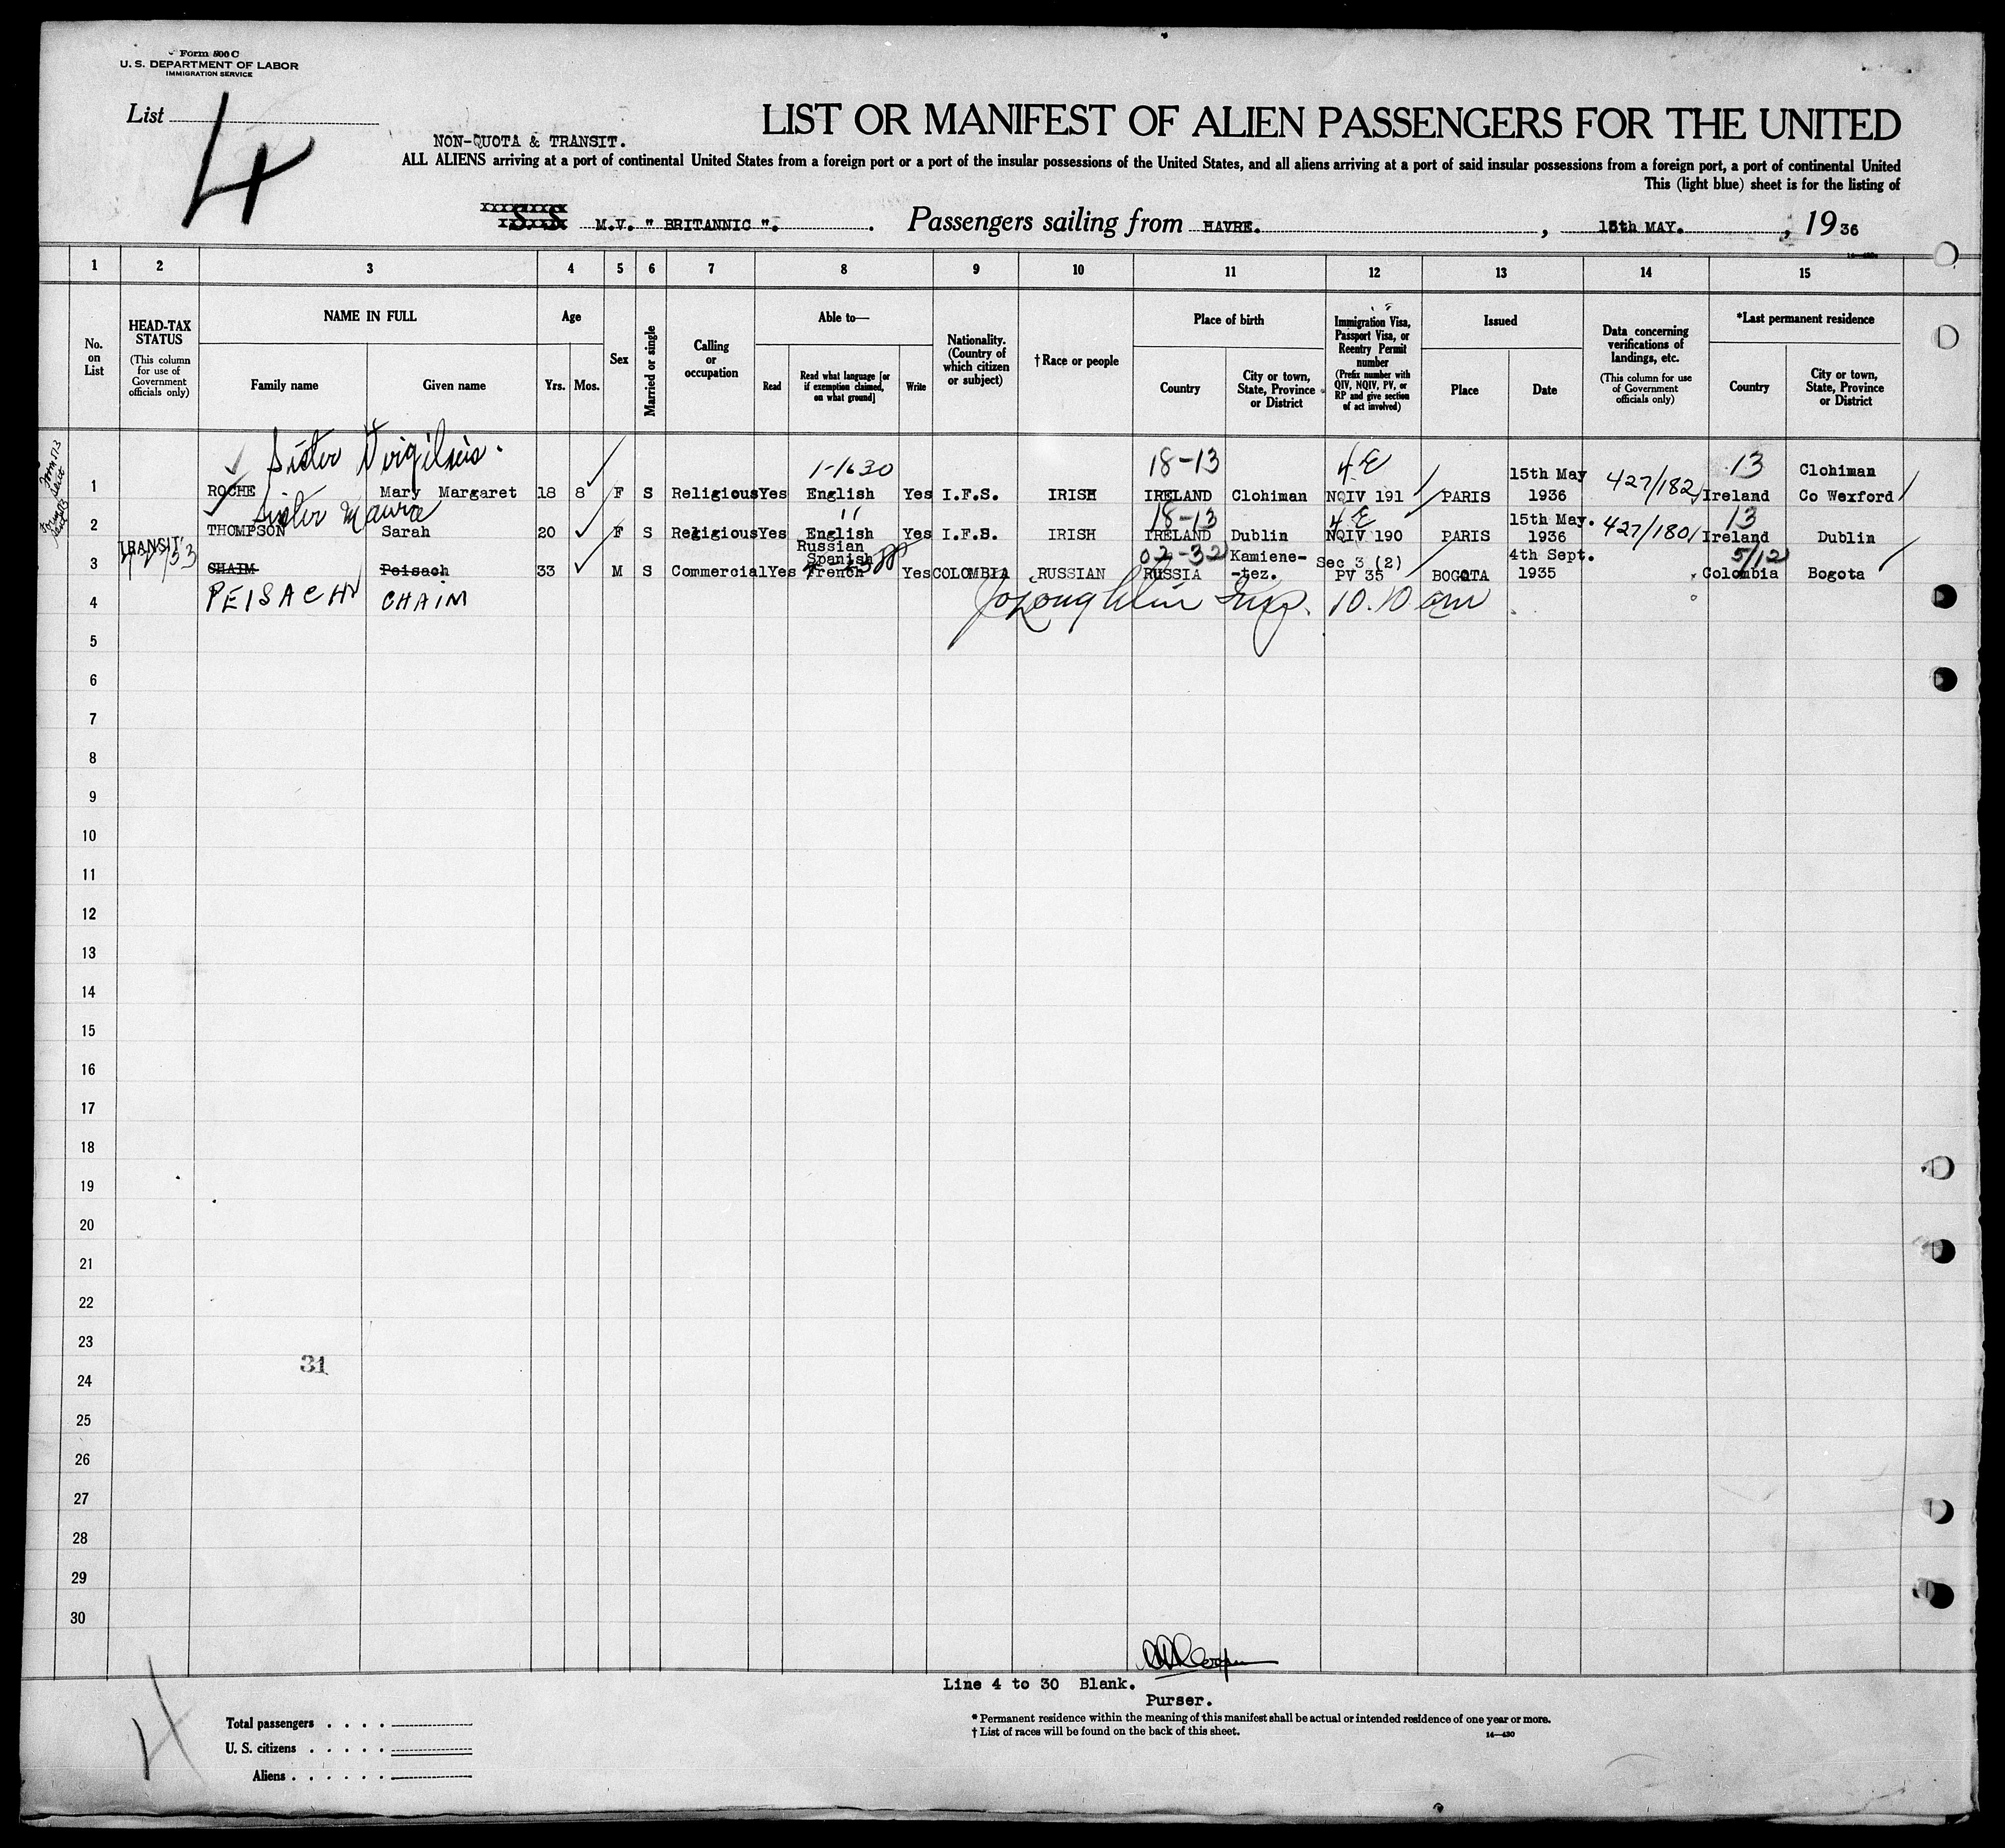 Form 500 C
U. S. DEPARTMENT OF LABOR
IMMIGRATION SERVICE
List 4
LIST OR MANIFEST OF ALIEN PASSENGERS FOR THE UNITED
NON-QUOTA & TRANSIT.
ALL ALIENS arriving at a port of continental United States from a foreign port or a port of the insular possessions of the United States, and all aliens arriving at a port of said insular possessions from a foreign port, a port of continental United
This (light blue) sheet is for the listing of
S.S. M.V. " BRITANNIC ". Passengers sailing from HAVRE. , 15th MAY. , 1936
1 2 3 4 5 6 7 8 9 10 11 12 13 14 15
No. on List
HEAD-TAX STATUS (This column for use of Government officials only)
NAME IN FULL
Family name
Given name
Age
Yrs.
Mos.
Sex
Married or single
Calling or occupation
Able to—
Read
Read what language [or if exemption claimed, on what ground]
Write
Nationality. (Country of which citizen or subject)
†Race or people
Place of birth
Country
City or town, State, Province or District
Immigration Visa, Passport Visa, or Reentry Permit number (Prefix number with QIV, NQIV, PV, or RP and give section of act involved)
Issued
Place
Date
Data concerning verifications of landings, etc. (This column for use of Government officials only)
*Last permanent residence
Country
City or town, State, Province or District
Sister Virgilius. 1-1630 18-13 4E 15th May 13 Clohiman
1 ROCHE Mary Margaret 18 8 F S Religious Yes English Yes I.F.S. IRISH IRELAND Clohiman NQIV 191 PARIS 1936 427/182 Ireland Co Wexford
Sister Maura " 18-13 4E 15th May. 13
2 THOMPSON Sarah 20 F S Religious Yes English Yes I.F.S. IRISH IRELAND Dublin NQIV 190 PARIS 1936 427/180 Ireland Dublin
TRANSIT Russian Spanish 02-32 Kamiene- Sec 3 (2) 4th Sept. 5/12
3 CHAIM Peisach 33 M S Commercial Yes French Yes COLOMBIA RUSSIAN RUSSIA -tez. PV 35 BOGOTA 1935 Colombia Bogota
4 PEISACH CHAIM Insp. 10.10 am
5
6
7
8
9
10
11
12
13
14
15
16
17
18
19
20
21
22
23
31
24
25
26
27
28
29
30
Line 4 to 30 Blank.
Purser.
Total passengers
U. S. citizens
Aliens
* Permanent residence within the meaning of this manifest shall be actual or intended residence of one year or more.
† List of races will be found on the back of this sheet.
14—430